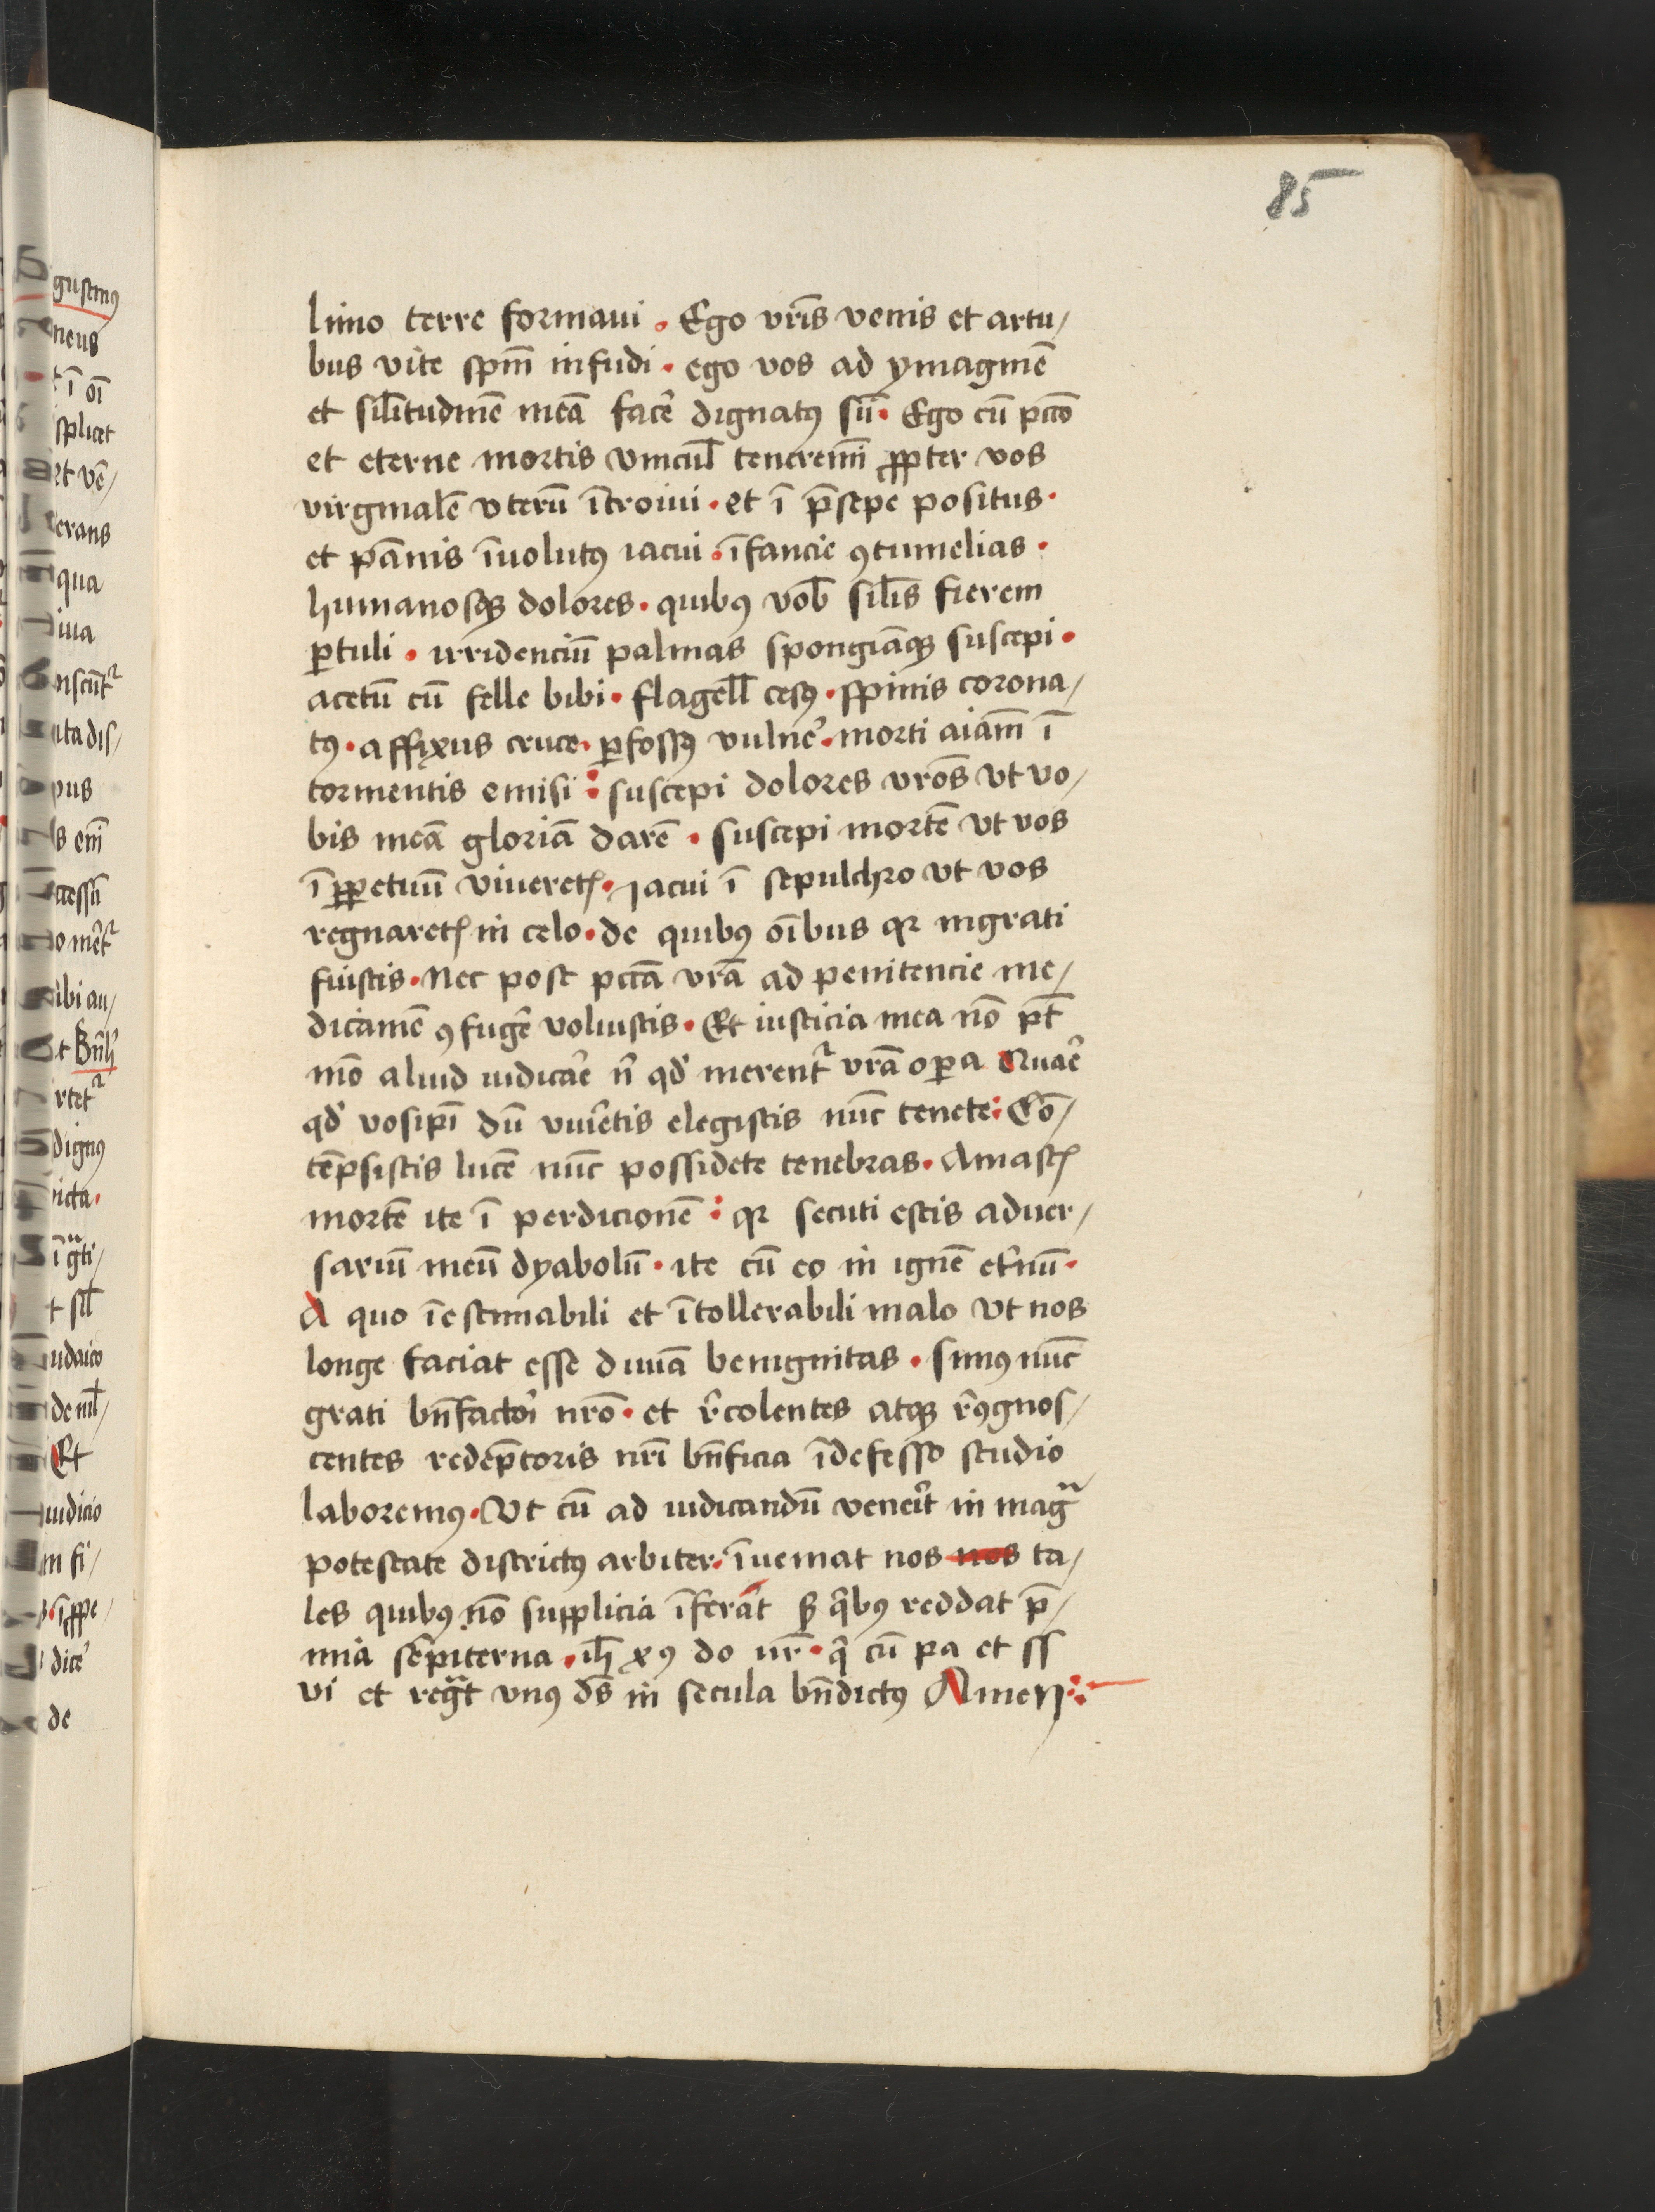 85
limo terre formaui . Ego vr̄is venis et artu/
bus vite spm̄ infudi . ego vos ad ymaginē
et silītudinē meā facē dignatꝰ sū . Ego cū pctō
et eterne mortis vincul̄ teneremī ꝓpter vos
virginalē vterū ītroiui . et ī p̄sepe positus .
et pānis īuolutꝰ iacui . īfancie ꝯtumelias .
humanosqꝫ dolores . quibꝰ vob̄ sil̄is fierem
ꝑtuli . irridenciū palmas spongiāqꝫ suscepi .
acetū cū felle bibi . flagell̄ cesꝰ . spinis corona/
tꝰ . affixus cruce . ꝑfossꝰ vulnē . morti aīam ī
tormentis emisi : suscepi dolores vr̄os vt vo/
bis meā gloriā darē . suscepi mortē vt vos
ī ꝑpetuū viueretꝭ . Iacui ī sepulchro vt vos
regnaretꝭ in celo . de quibꝰ oībus qꝛ ingrati
fuistis . Nec post pctā vr̄a ad penitencie me/
dicamē ꝯfugē voluistis . Et iusticia mea nō pt̄
mō aliud iudicāe n̄ qd̓ merent᷑ vr̄a oꝑa Quāe
qd̓ vosip̄i dū viuētis elegistis nūc tenete : Cō/
tēpsistis lucē nūc possidete tenebras . Amastꝭ
mortē ite ī perdicionē : qꝛ secuti estis aduer/
sariū meū dyabolū . ite cū eo in ignē et̓nū .
A quo īestimabili et ītollerabili malo vt nos
longe faciat esse diuīa benignitas . simꝰ nūc
grati bn̄factoī nr̄o . et r̄colentes atqꝫ r̄ꝯgnos/
centes redēptoris nr̄i bn̄ficia īdefesso studio
laboremꝰ . Vt cū ad iudicandū veneīt in magᷓ
potestate districtꝰ arbiter . īueniat nos nos ta/
les quibꝰ nō supplicia īferāt sꝫ q̄bꝰ reddat p̄/
mia sēpiterna . ih̄s xꝰ do nr̄ . q̄ cū pa et ss
vi et regᷓt vnꝰ ds̄ in secula bn̄dictꝰ Amen :